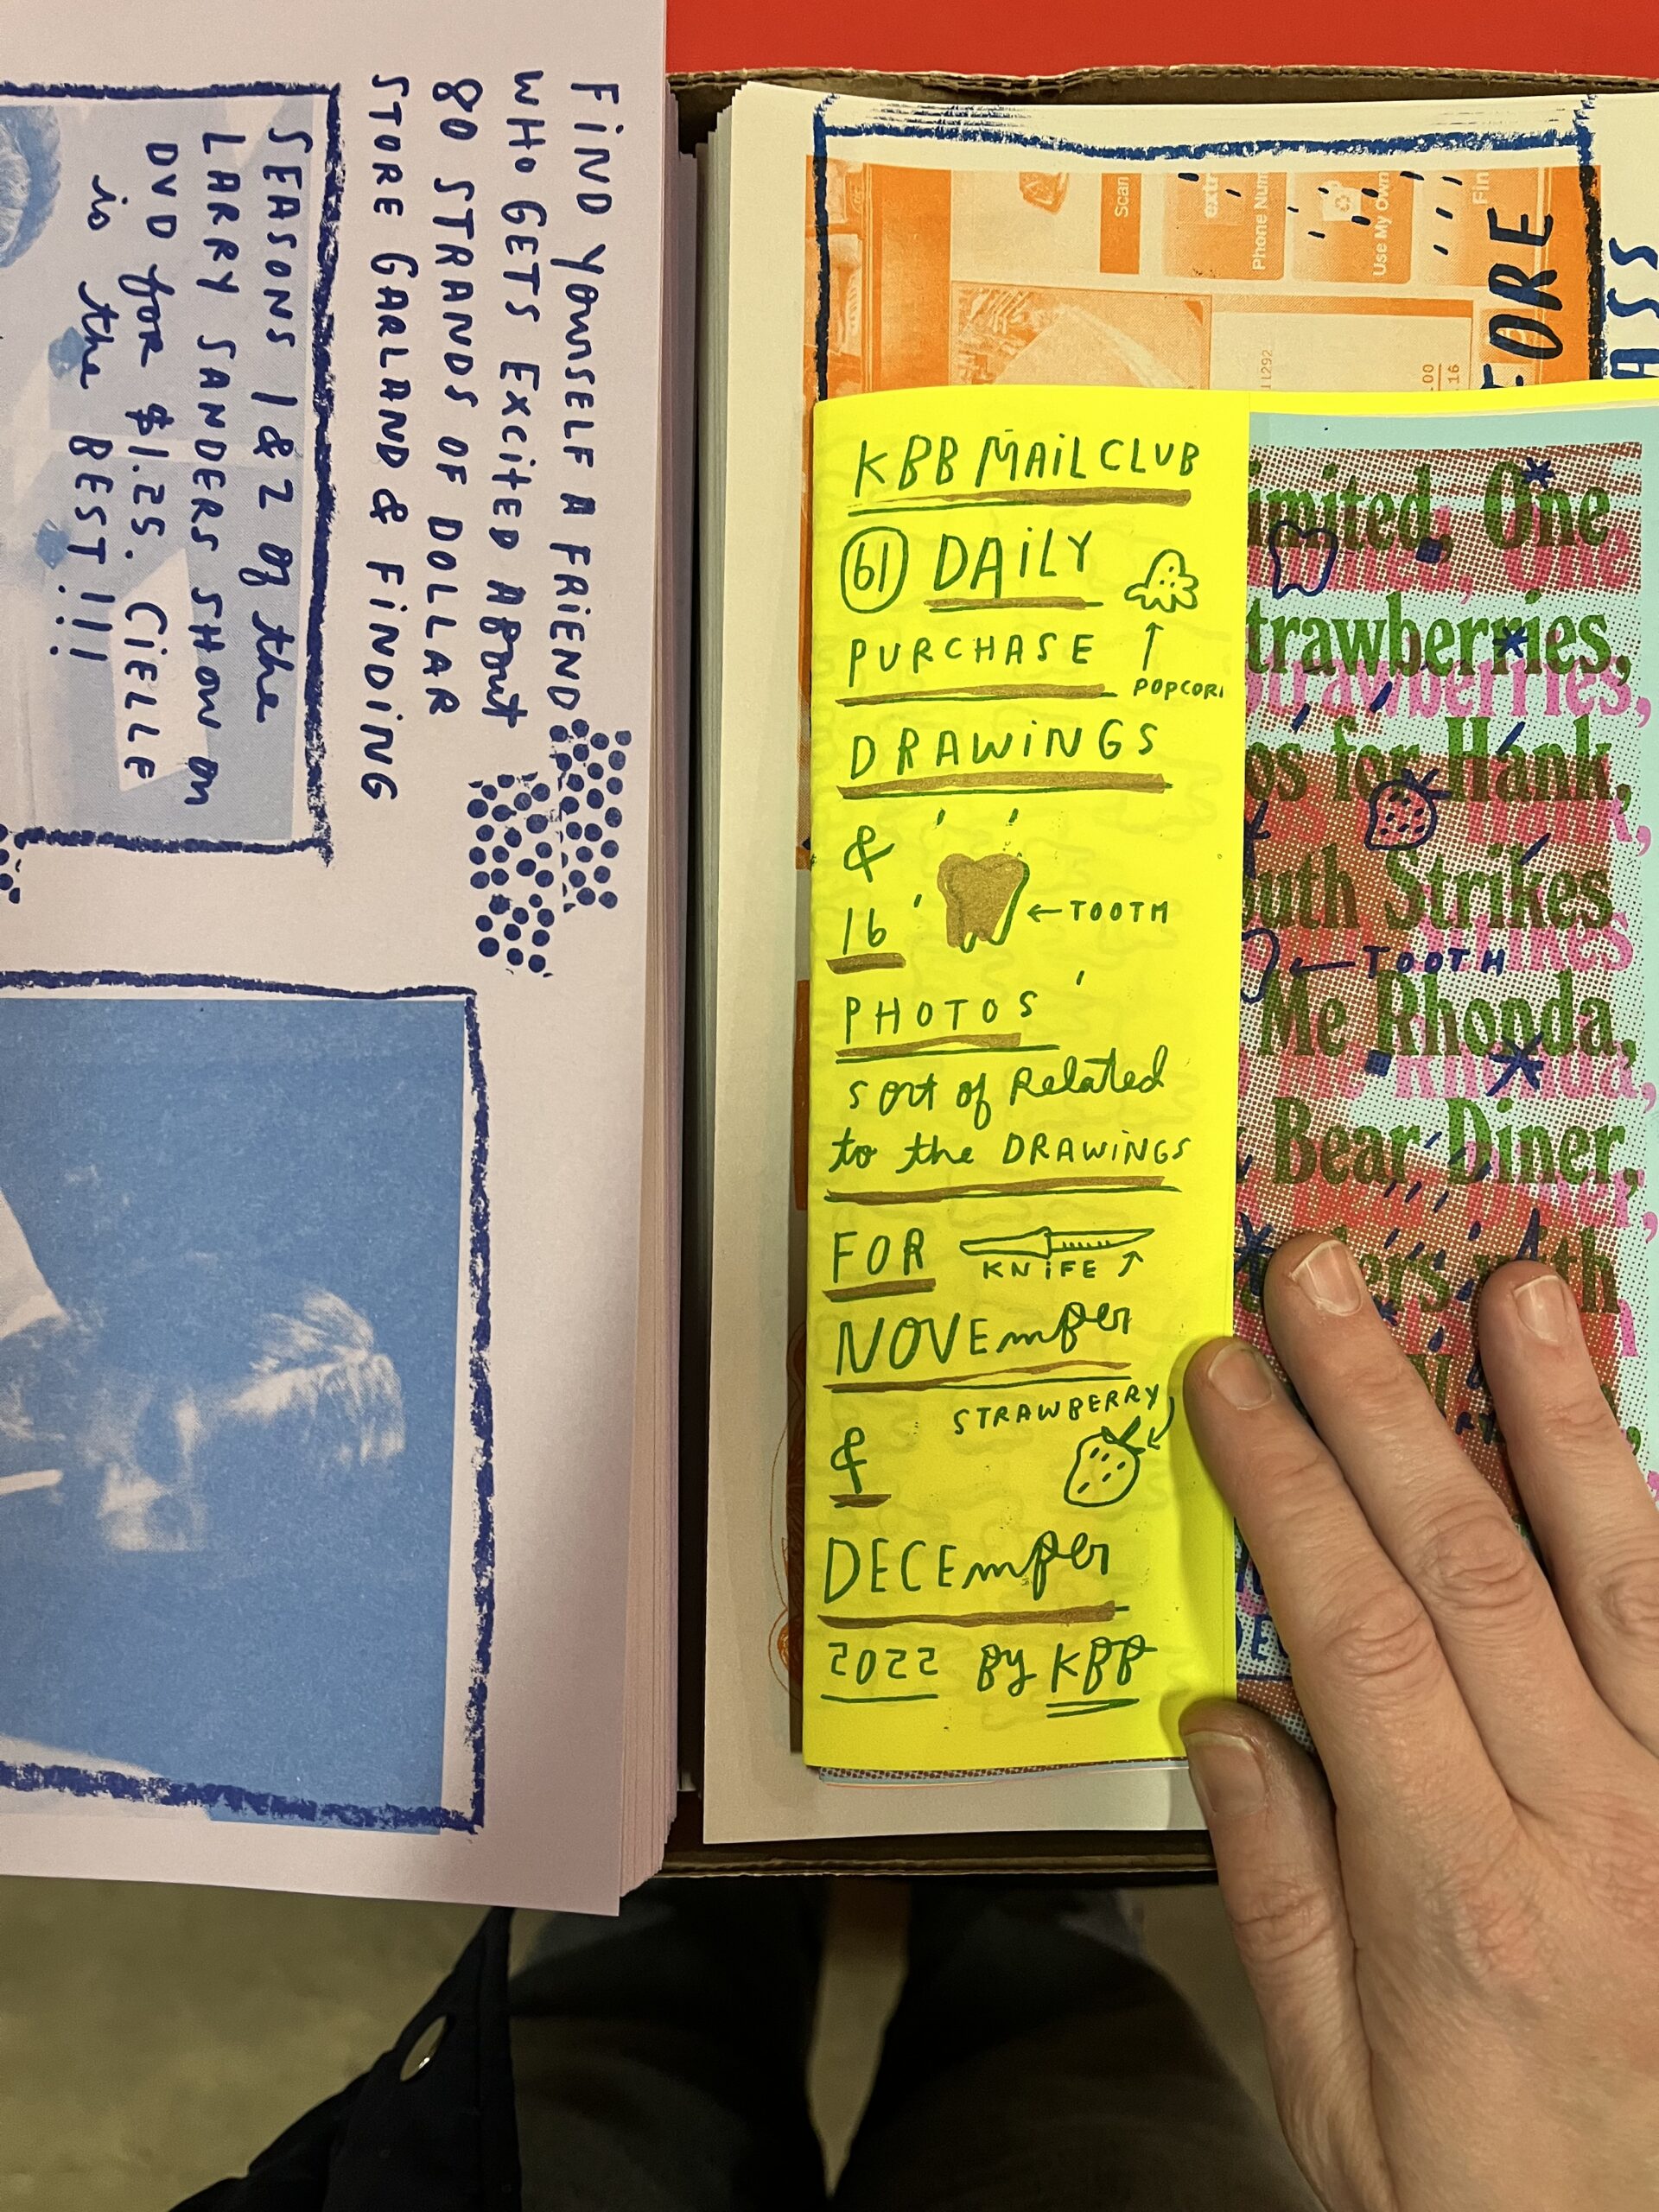 FIND YOURSELF A FRIEND
WHO GETS EXCITED ABOUT
80 STRANDS OF DOLLAR
STORE GARLAND & FINDING
SEASONS 1 & 2 of the
LARRY SANDERS SHOW on
DVD for $1.25. CIELLE
is the BEST!!!
Scan
extr
Phone Num
Use My Own
Fin
11292
.00
.16
ORE
ASS
KBB MAIL CLUB
61 DAILY
PURCHASE
POPCORN
DRAWINGS
&
16
TOOTH
PHOTOS
sort of Related
to the DRAWINGS
FOR
KNIFE
NOVEmber
STRAWBERRY
&
DECEmber
2022 by KBB
imited, One
trawberries,
es for Hank,
outh Strikes
TOOTH
Me Rhonda,
Bear Diner,